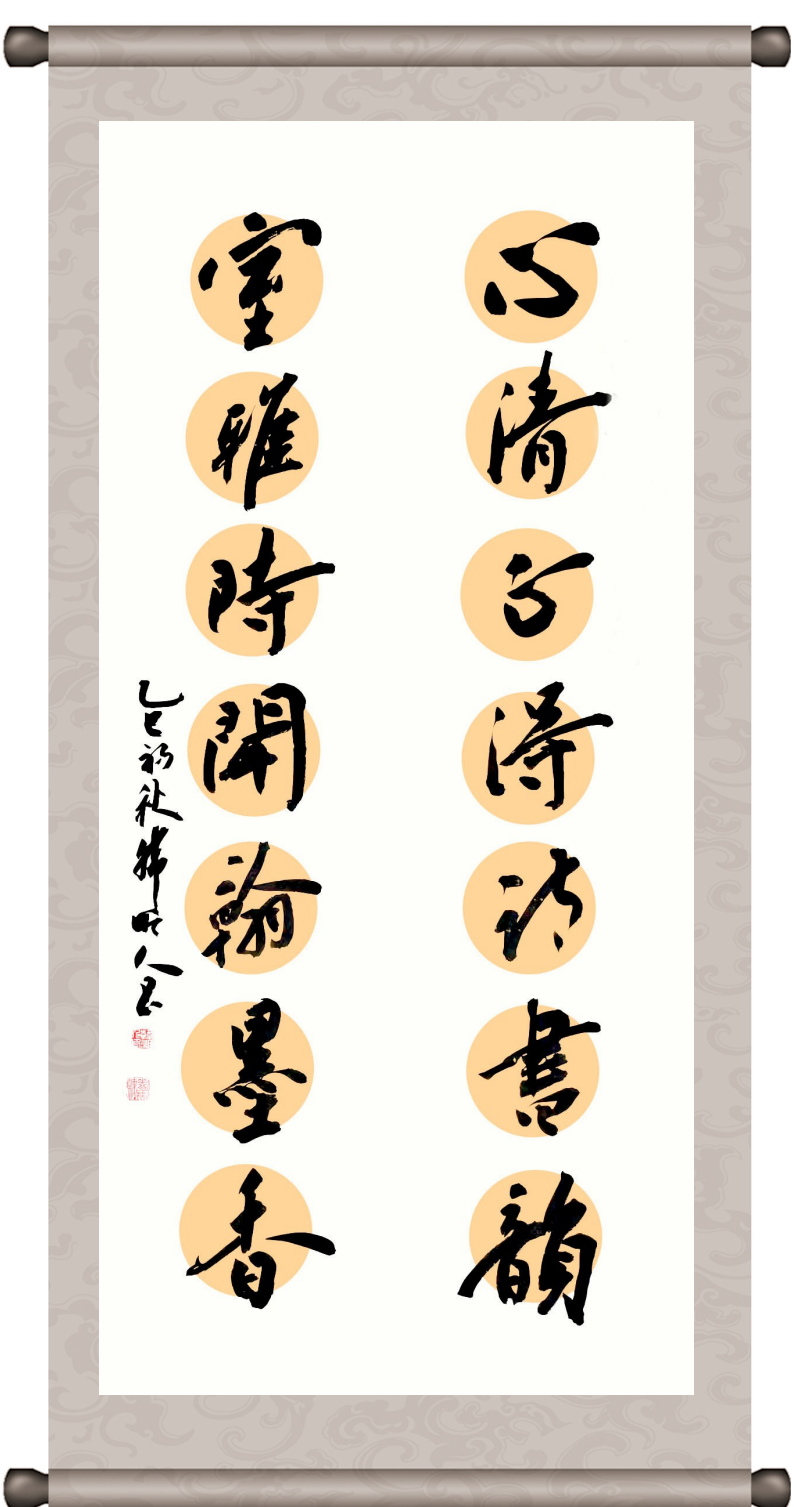 心清自得詩書韻
室雅時聞翰墨香
乙巳初秋 明人書